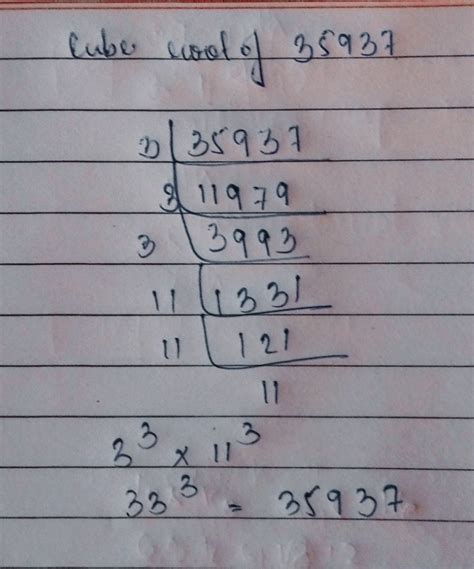 Cube root of 35937
3 35937
3 11979
3 3993
11 1331
11 121
11
3³ x 11³
33³ = 35937